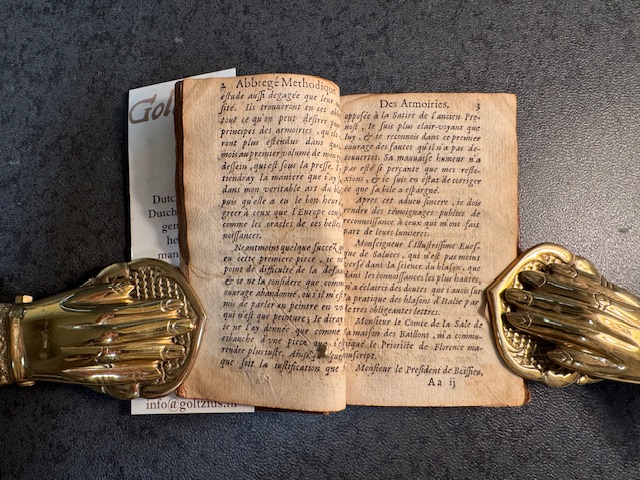 Golt
Dutc
Dutch
gen
he
man
info@goltzius.nl
2 Abbregé Methodique
eſtude auſſi degagée que leur
ſité. Ils trouveront en cet ab
tout ce qu'on peut deſirer pou
principes des armoiries, qu'il
ront plus eſtendus dans
mois au premier volume de mon
deſſein, qui eſt ſous la preſſe. I
tiendray la maniere que i'ay
dans mon veritable art du bl
puis qu'elle a eu le bon heur
gréer à ceux que l'Europe con
comme les oracles de ces belle
noiſſances.
Neantmoins quelque ſuccez q
eu cette premiere piece, ie n
point de difficulté de la deſa
& ie ne la conſidere que comm
ouurage abandonné, où il m'eſt
mis de parler en peintre en vo
qui n'eſt que peinture; ie dirai
ie ne l'ay donnée que comme
eſbauche d'une piece
rendre plus iuſte,
que ſoit la iuſtification que
Des Armoiries. 3
oppoſée à la Satire de l'ancien Pre-
uoſt, Ie ſuis plus clair-voyant que
luy, & ie reconnois dans ce premier
ouurage des fautes qu'il n'a pas de-
couuertes. Sa mauuaiſe humeur n'a
pas eſté ſi perçante que mes refle-
xions, & ie ſuis en eſtat de corriger
ce que ſa bile a eſpargné.
Apres cet adueu ſincere, ie dois
rendre des témoignages publics de
reconnoiſſance à ceux qui m'ont fait
part de leurs lumieres.
Monſeigneur l'Illuſtriſſime Eueſ-
que de Saluces, qui n'eſt pas moins
verſé dans la ſcience du blaſon, que
dans les connoiſſances les plus hautes,
m'a éclairci des doutes que i'auois ſur
la pratique des blaſons d'Italie par
ſes tres obligeantes lettres.
Monſieur le Comte de la Sale de
la maiſon des Baillons, m'a commu-
niqué le Prioriſte de Florence ma-
nuſcript.
Monſieur le Preſident de Boiſſieu,
Aa ij